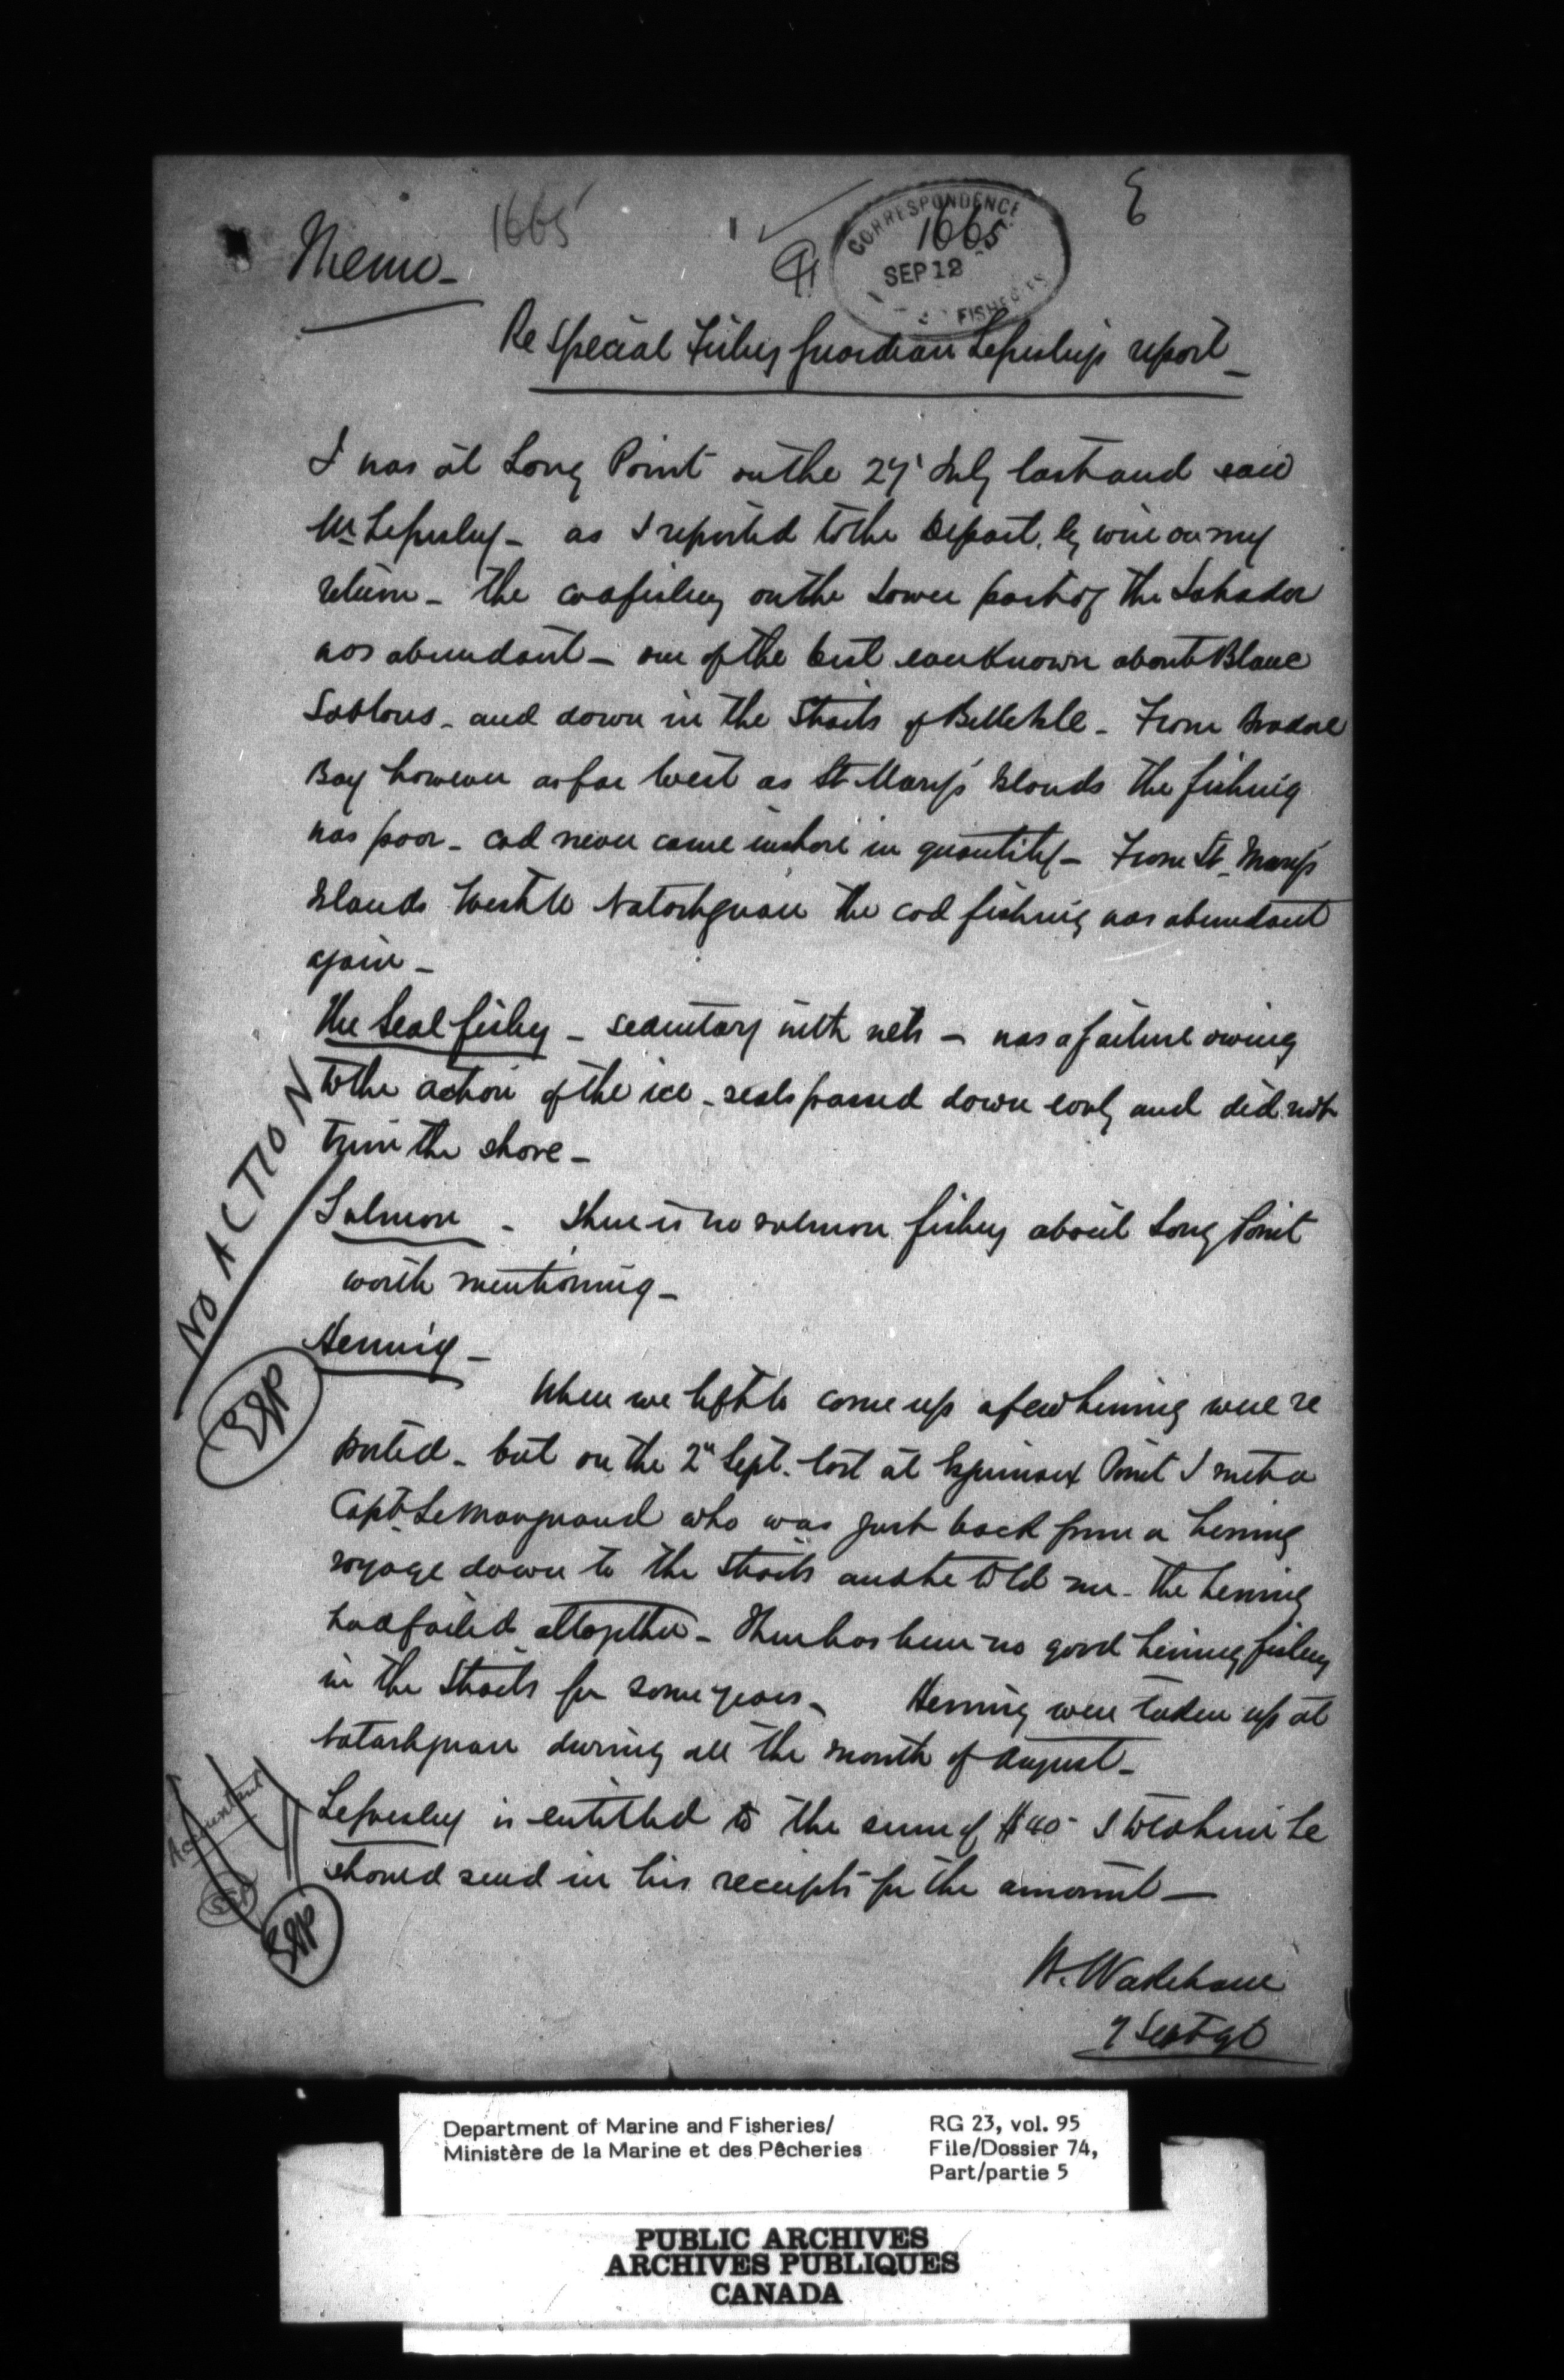 1665
E
CORRESPONDENCE
1665
SEP 12
FISHERIES
Memo -
Re Special Fishery Guardian report -
I was at Long Point on the 27 July last and saw
Mr - as I reported to the Depart. by wire on my
return - the cod fishery on the Lower part of the Labrador
was abundant - one of the best ever known about Blanc
Sablons - and down in the Straits of Belleisle - From Bradore
Bay however as far West as St. Mary's Islands the fishing
was poor - cod never came inshore in quantity - From St. Mary's
Islands West to Natashquan the cod fishing was abundant
again -
The Seal fishery - sedentary with nets - was a failure owing
to the action of the ice - seals passed down early and did not
trim the shore -
Salmon - There is no salmon fishery about Long Point
worth mentioning -
Herring -
When we left to come up a few herring were re
ported - but on the 2n Sept. last at Esquimaux Point I met a
Capt. LeMarquand who was just back from a herring
voyage down to the Straits and he told me - the herring
had failed altogether - There has been no good herring fishery
in the Straits for some years - Herring were taken up at
Natashquan during all the month of August -
is entitled to the sum of $40 - I told him he
should send in his receipts for the amount -
W. Wakeham
7 Sept 96
NO ACTION
Accountant
Department of Marine and Fisheries/
Ministère de la Marine et des Pêcheries
RG 23, vol. 95
File/Dossier 74,
Part/partie 5
PUBLIC ARCHIVES
ARCHIVES PUBLIQUES
CANADA